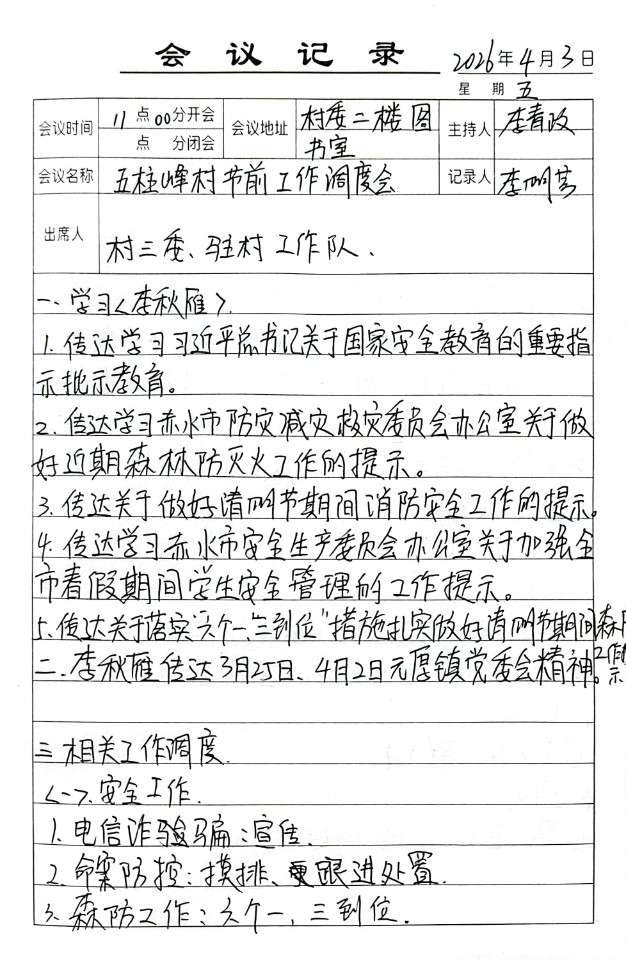 会议记录 2026年4月3日
星期五
会议时间 11点00分开会 会议地址 村委二楼图书室 主持人 李青政
点 分闭会
会议名称 五柱峰村节前工作调度会 记录人 李明芸
出席人 村三委、驻村工作队.
一. 学习<李秋雁>.
1. 传达学习习近平总书记关于国家安全教育的重要指
示批示教育。
2. 传达学习赤水市防灾减灾救灾委员会办公室关于做
好近期森林防灭火工作的提示。
3. 传达关于做好清明节期间消防安全工作的提示。
4. 传达学习赤水市安全生产委员会办公室关于加强全
市春假期间学生安全管理的工作提示。
5. 传达关于落实“六个一、三到位”措施扎实做好清明节期间森防
工作提示
二. 李秋雁传达3月25日、4月2日元厚镇党委会精神。
三 相关工作调度.
<一>. 安全工作.
1. 电信诈骗:宣传.
2. 命案防控:摸排、跟进处置.
3. 森防工作:六个一,三到位.